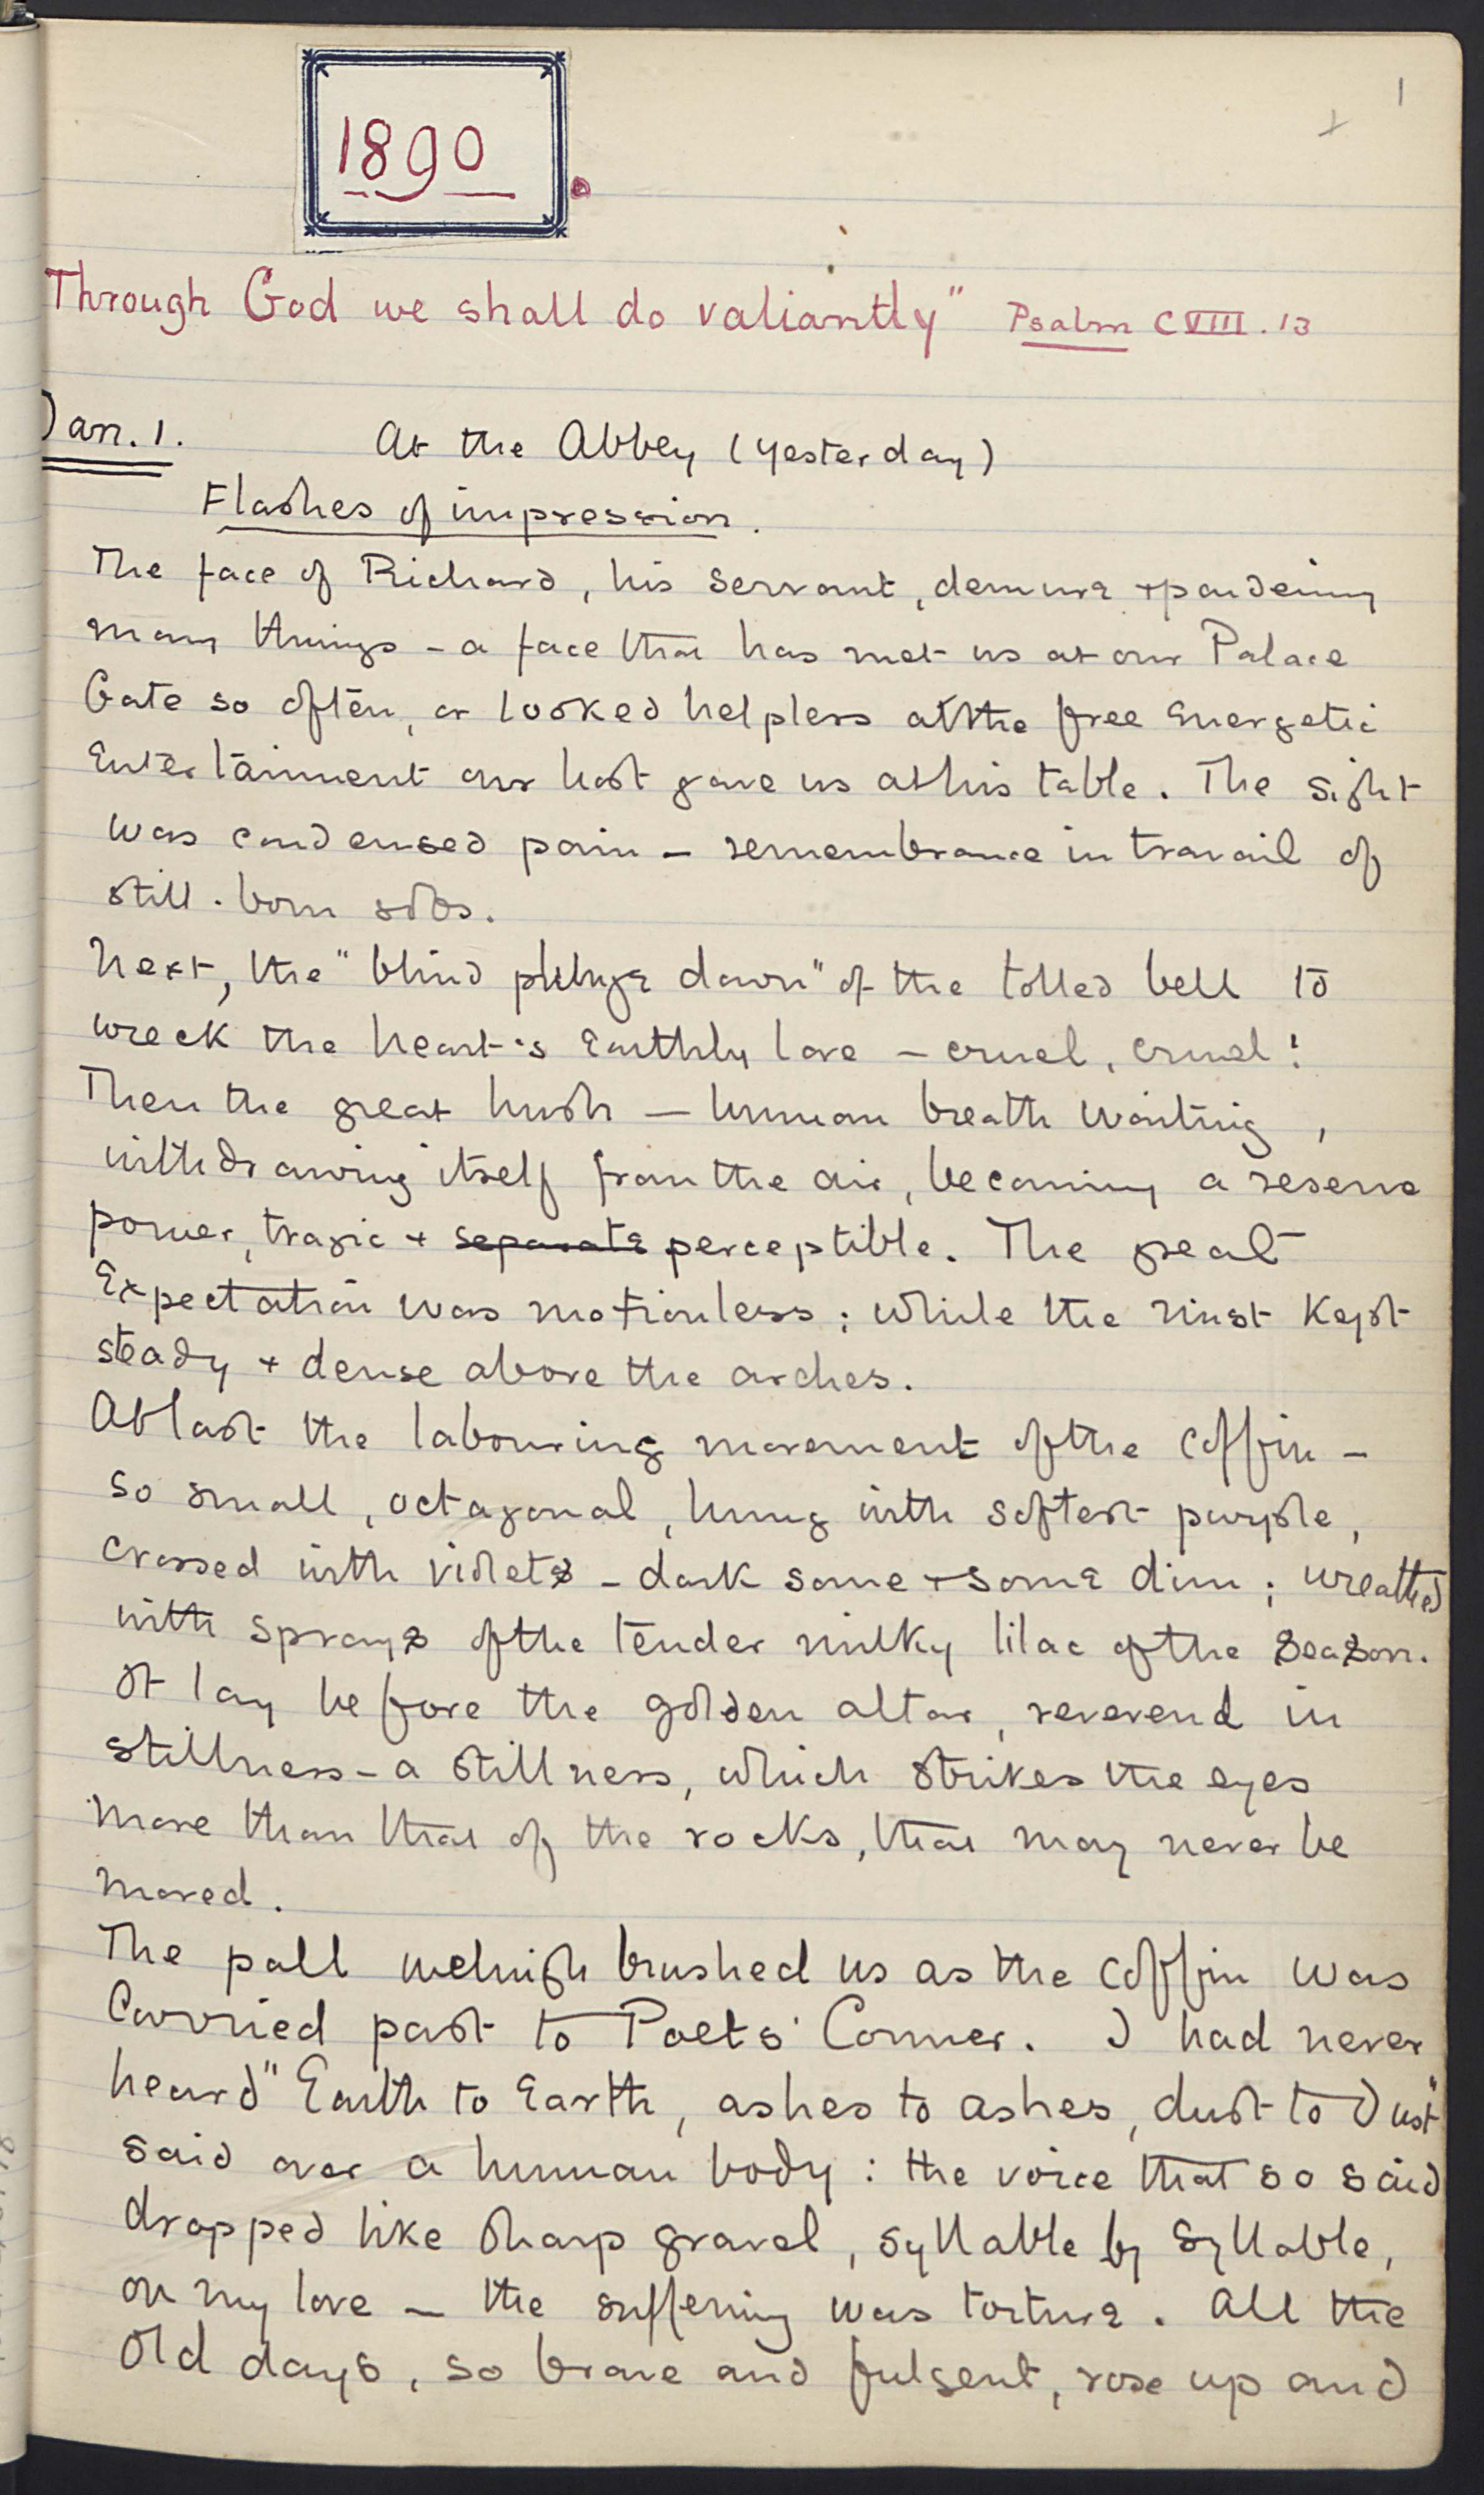 1
1890
Through God we shall do valiantly" Psalm CVIII. 13
Jan. 1. At the Abbey (yesterday)
Flashes of impression.
The face of Richard, his servant, demure + pondering
many things - a face that has met us at our Palace
Gate so often, or looked helpless at the free energetic
entertainment our host gave us at his table. The sight
was condensed pain - remembrance in travail of
still-born sobs.
Next, the "blind plunge down" of the tolled bell to
wreck the heart's earthly love - cruel, cruel!
Then the great hush - human breath waiting,
withdrawing itself from the air, becoming a reserve
power, tragic + separate perceptible. The great
Expectation was motionless; while the mist kept
steady + dense above the arches.
At last the labouring movement of the coffin -
so small, octagonal, hung with softest purple,
crossed with violets - dark some + some dim; wreathed
with sprays of the tender milky lilac of the season.
It lay before the golden altar, reverend in
stillness - a stillness, which strikes the eyes
more than that of the rocks, that may never be
moved.
The pall wellnigh brushed us as the coffin was
carried past to Poets' Corner. I had never
heard "Earth to Earth, ashes to ashes, dust to Dust"
said over a human body: the voice that so said
dropped like sharp gravel, syllable by syllable,
on my love - the suffering was torture. All the
old days, so brave and fulgent, rose up and